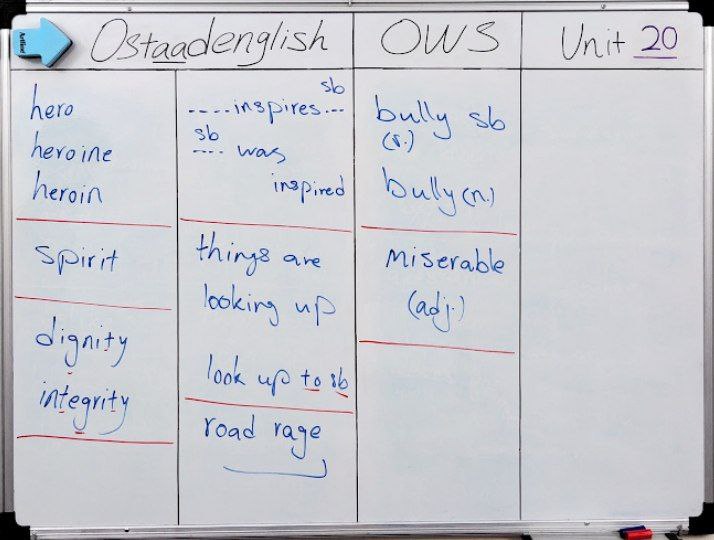 Ostaadenglish OWS Unit 20
hero
heroine
heroin
spirit
dignity
integrity
sb
----inspires---
sb
---- was
inspired
things are
looking up
look up to sb
road rage
bully sb
(v.)
bully (n.)
miserable
(adj.)